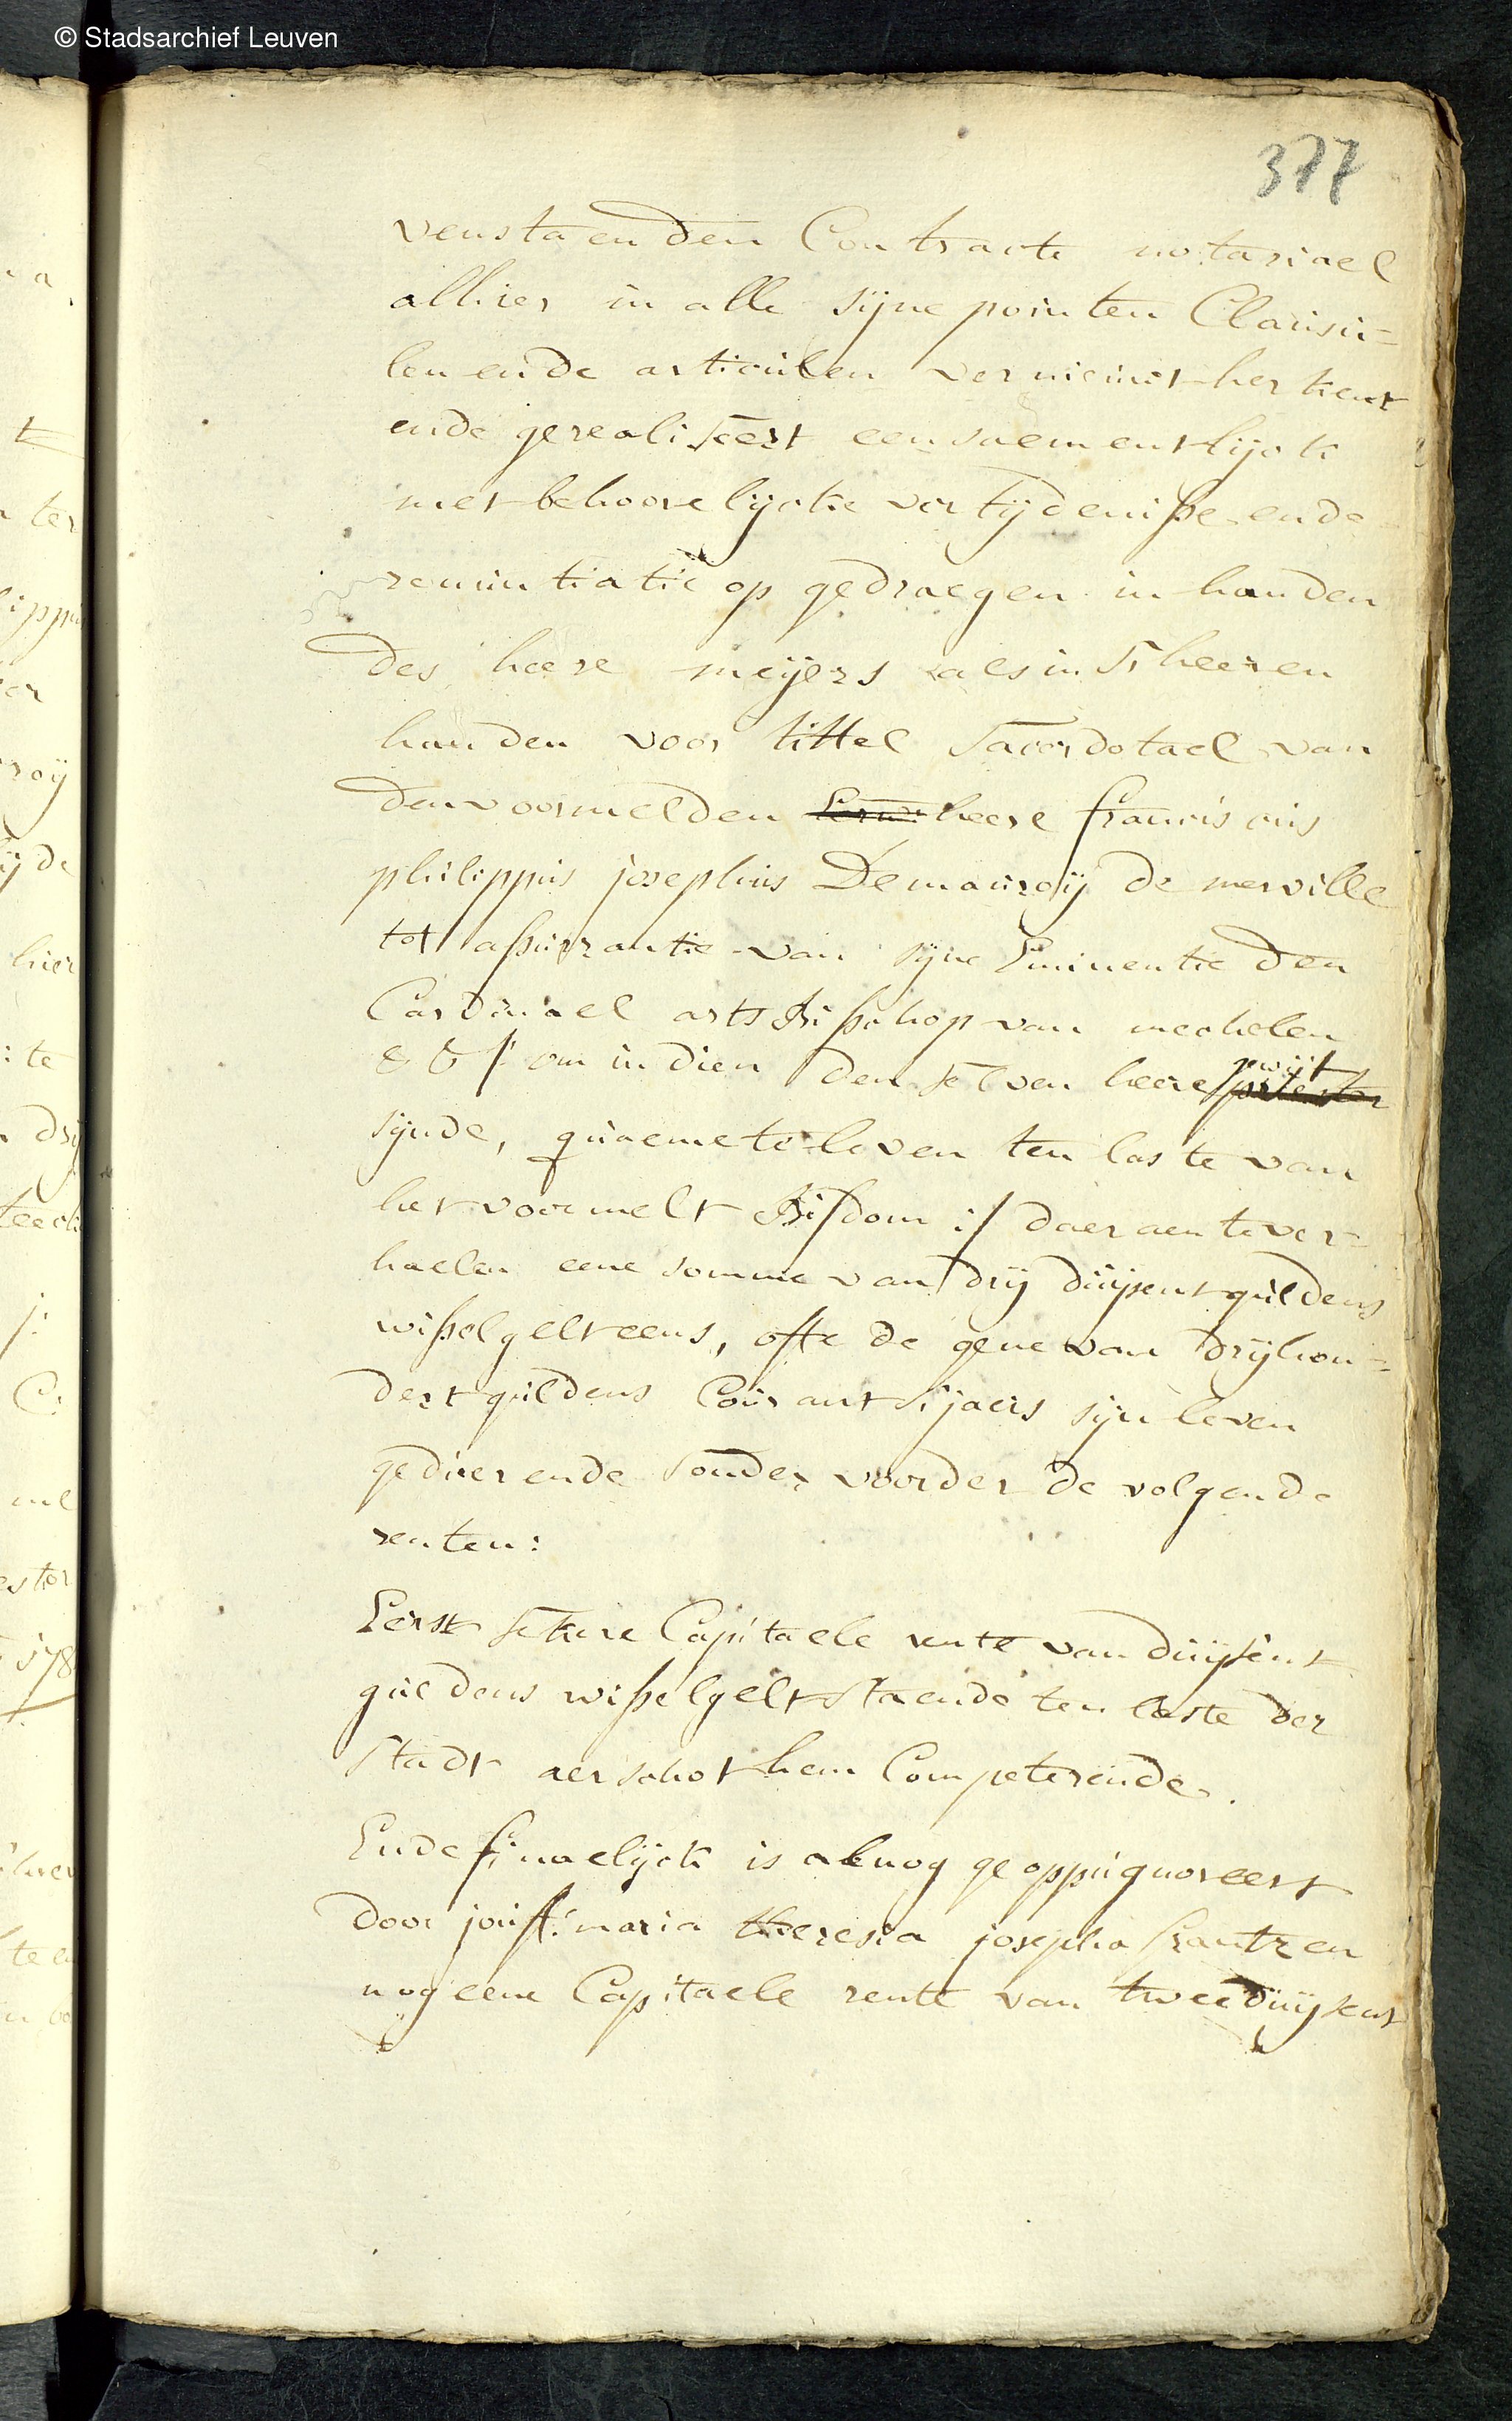 © Stadsarchief Leuven
377
venstaenden Contracte notariael
alhier in alle sijne pointen Clausu-
len ende articulen vernieuwt herkent
ende gerealiseert eensaementlijck
met behoorelijcke vertijdenisse ende
renuntiatie opgedraegen in handen
des heere meijers als in s'heeren
handen voor tittel sacerdotael van
den voormelden heere franciscus
philippus josephus Demauroij de merville
tot assurrantie van sijne Eminentie den
Cardinael arts Bisschop van mechelen
om indien den selven heere priester gewijt
sijnde, quaeme te leven ten laste van
het voormelt Bisdom :/ daer aen te ver-
haelen eene somme van drij duijsent guldens
wisselgelt eens, ofte de gene van drijhon-
dert guldens Courant s'jaers sijn leven
geduerende sonder voorder de volgende
renten:
Eerst sekere Capitaele rente van duijsent
guldens wisselgelt staende ten laste der
stadt aerschot hem Competerende.
Ende finaelijck is alnog geoppignoreert
door jouff: maria theresia josepha frantzen
nog eene Capitaele rente van tweeduijsent